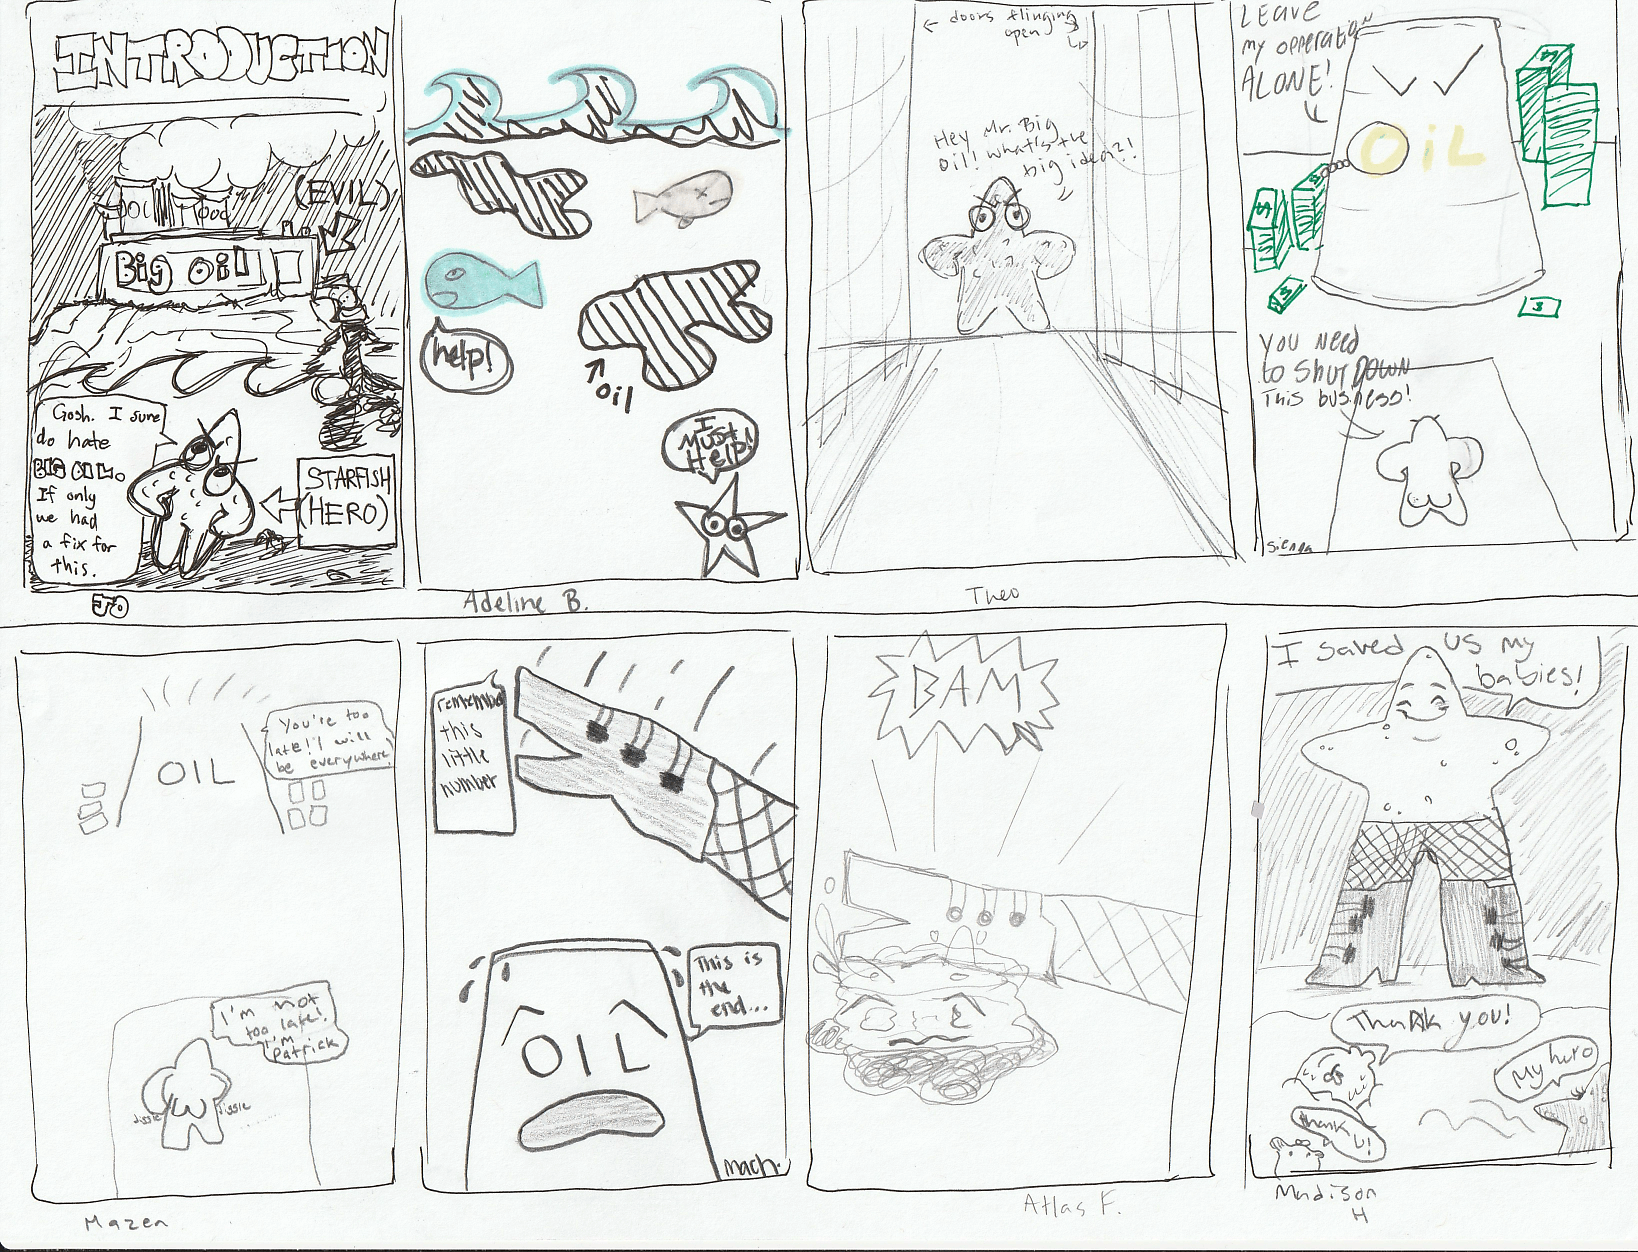 INTRODUCTION
(EVIL)
Big Oil
Gosh. I sure
do hate
BIG OIL.
If only
we had
a fix for
this.
STARFISH
(HERO)
JO
help!
Oil
I
Must
Help!
Adeline B.
← doors flinging →
open
Hey Mr. Big
Oil! what's the
big idea?!
Theo
LEAVE
my opperation
ALONE!
OiL
$
$
$
$
$
$
YOU NEED
to Shut DOWN
This business!
Sienna
You're too
late! I will
be everywhere
OIL
I'm not
too late!
I'm
Patrick
jiggle
jiggle
Mazen
remember
this
little
number
This is
the
end...
OIL
Mach.
BAM
Atlas F.
I saved us my
babies!
Thank you!
My hero
Thank
u!
Madison
H